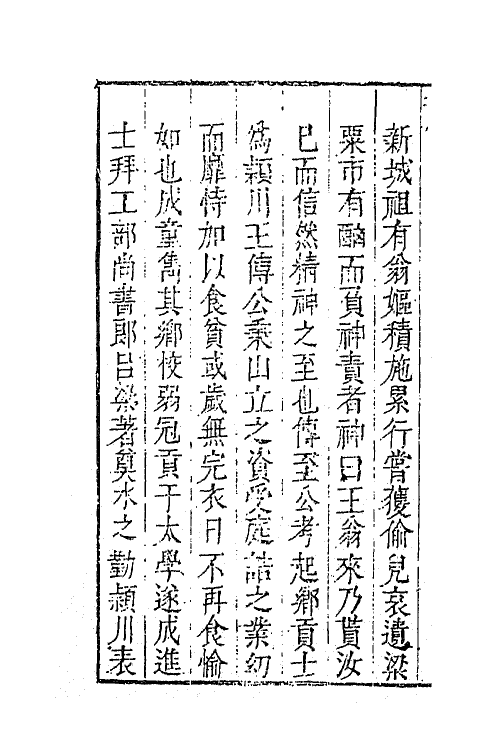 新城祖有翁嫗積施累行嘗獲偷兒哀遺粱
粟市有酗而頁神責者神曰王翁來乃貰汝
已而信然精神之至也傳至公考起鄉貢士
為潁川王傅公乘山立之資受庭誥之業幼
而靡恃加以食貧或歲無完衣日不再食愉
如也成童雋其鄉校弱冠貢于太學遂成進
士拜工部尚書郎呂梁著奠水之勤潁川表